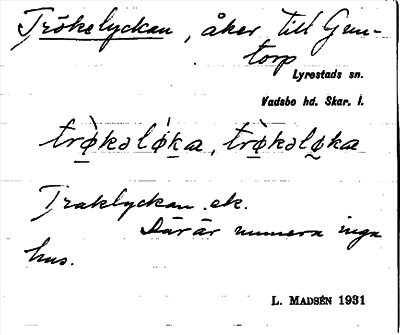 Trökelyckan, åker till Gun-
torp
Lyrestads sn.
Vadsbo hd. Skar. l.
trø̀kəlø̀ka, trø̀kəlo̱ka
Traklyckan ek.
Där är numera inga
hus.
L. MADSÉN 1931